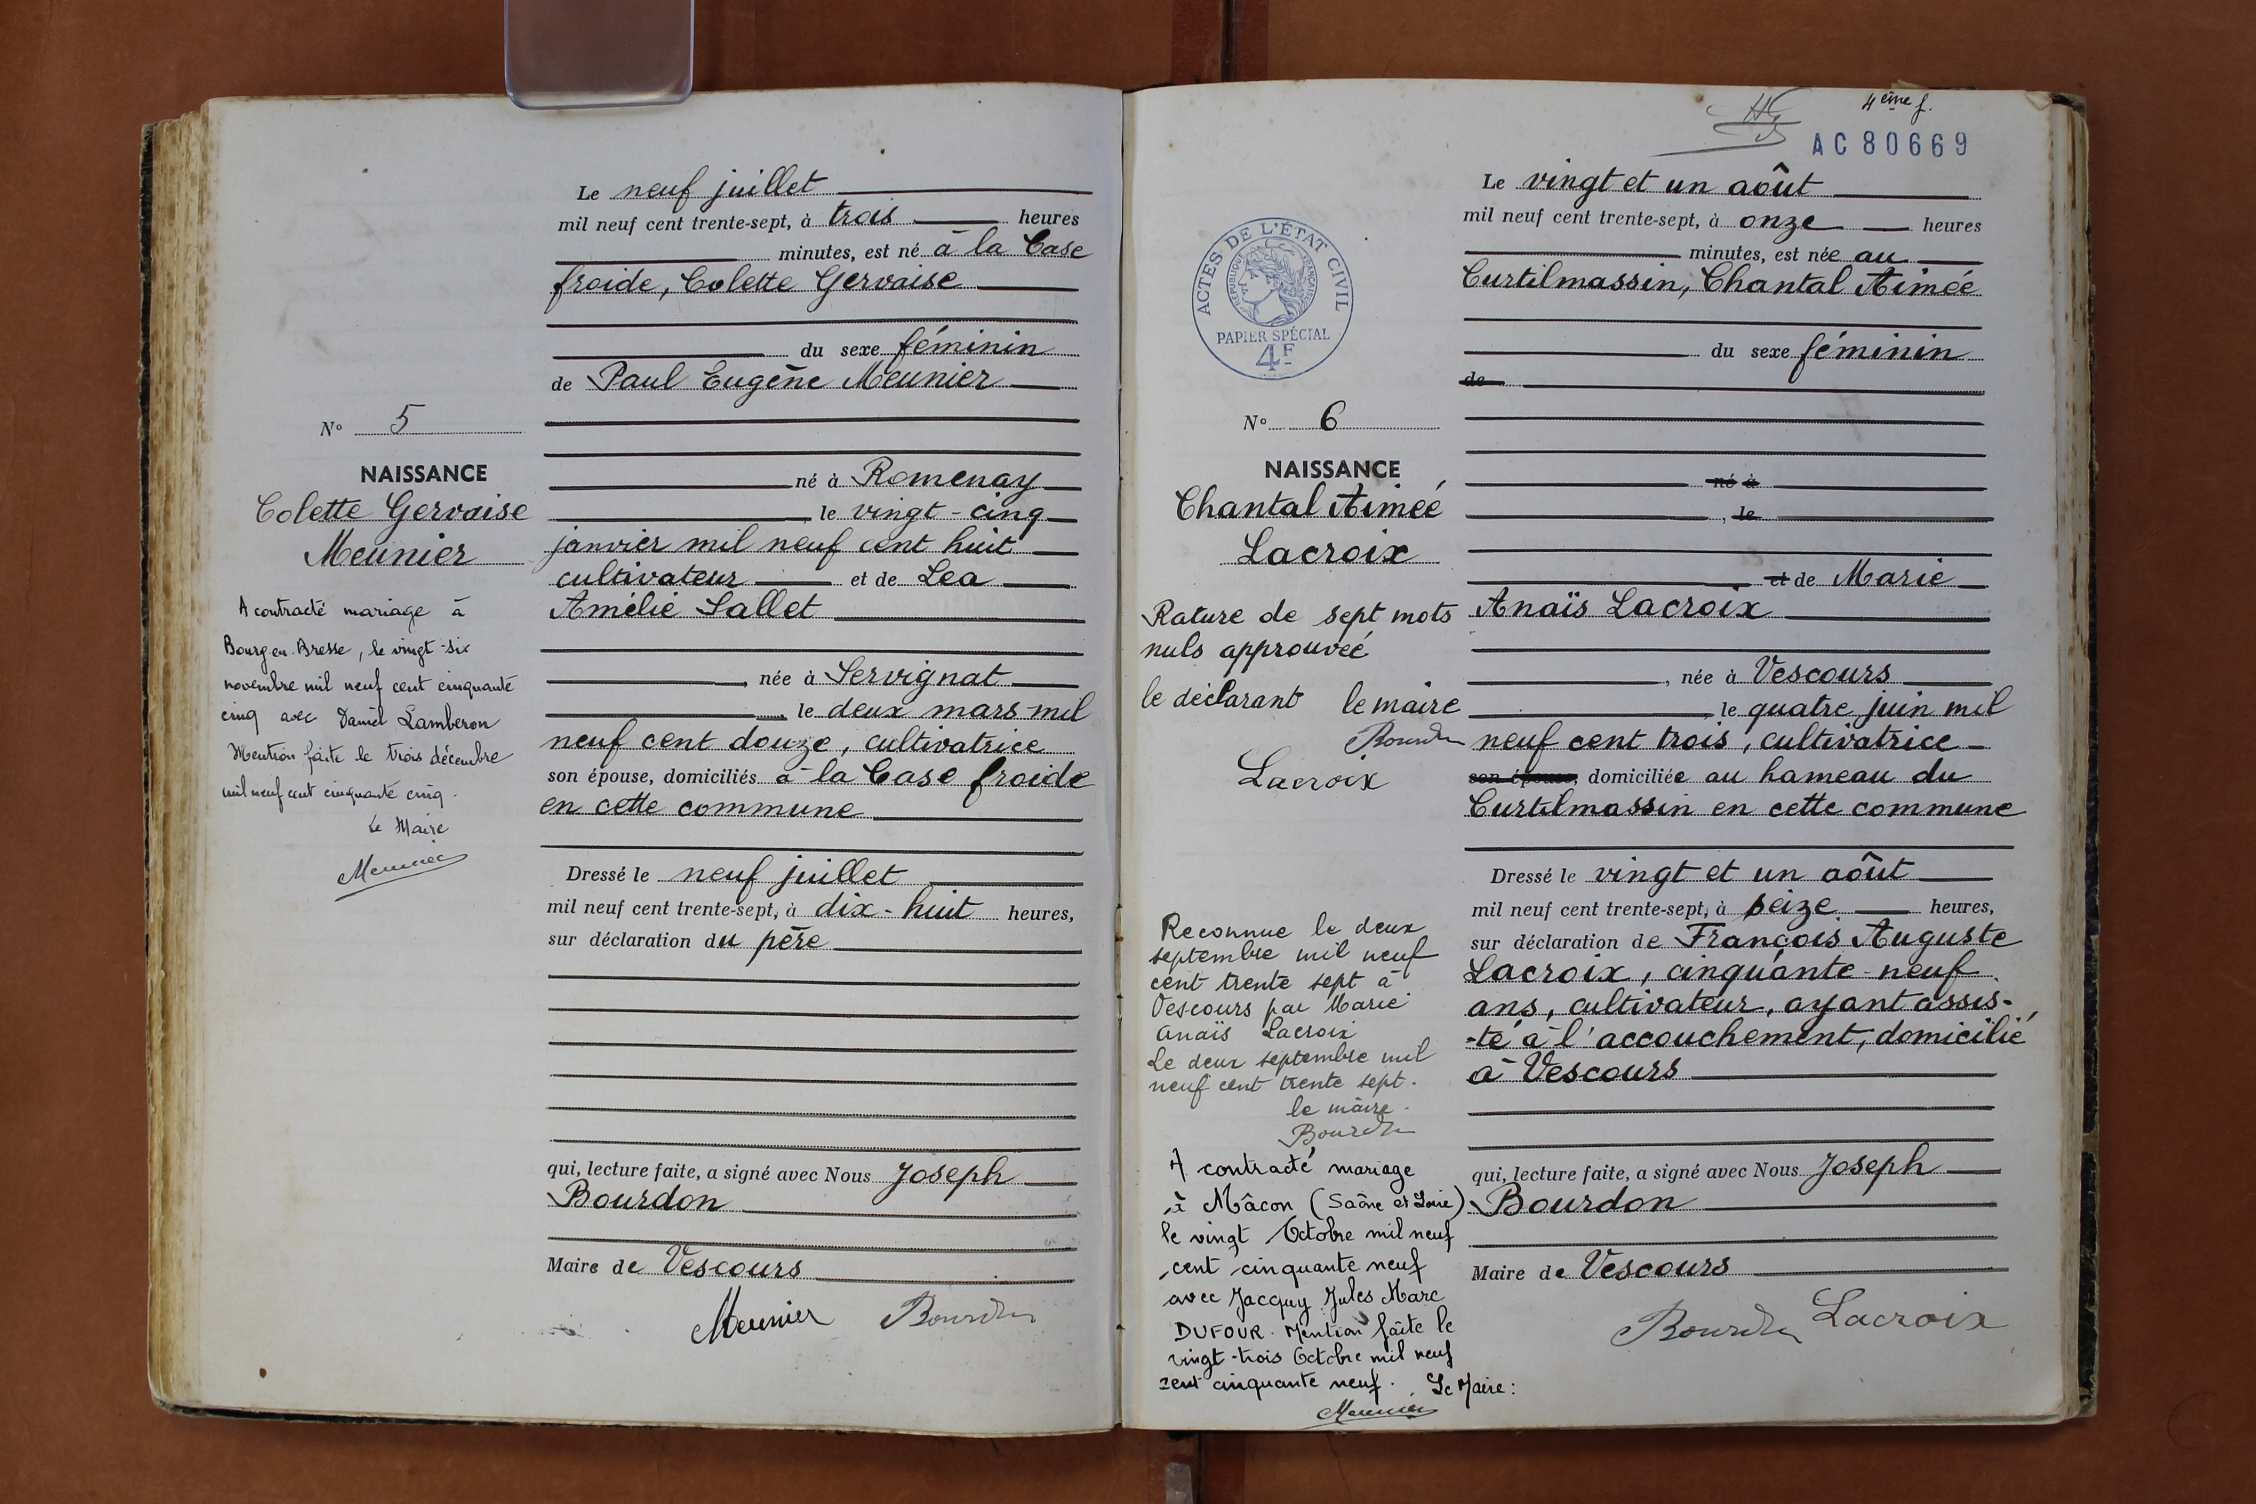 Le neuf juillet
mil neuf cent trente-sept, à trois heures
minutes, est né à la Case
froide, Colette Gervaise
du sexe féminin
de Paul Eugène Meunier
N° 5
NAISSANCE
Colette Gervaise
Meunier
né à Romenay
, le vingt-cinq
janvier mil neuf cent huit
cultivateur et de Lea
Amélie Sallet
née à Servignat
, le deux mars mil
neuf cent douze, cultivatrice
son épouse, domiciliés à la Case froide
en cette commune
A contracté mariage à
Bourg en Bresse, le vingt-six
novembre mil neuf cent cinquante
cinq avec Daniel Lamberon
Mention faite le trois décembre
mil neuf cent cinquante cinq.
Le Maire
Meunier
Dressé le neuf juillet
mil neuf cent trente-sept, à dix-huit heures,
sur déclaration du père
qui, lecture faite, a signé avec Nous Joseph
Bourdon
Maire de Vescours
Meunier Bourdon
4ème f.
AC80669
Le vingt et un août
mil neuf cent trente-sept, à onze heures
minutes, est née au
Curtilmassin, Chantal Aimée
du sexe féminin
de
ACTES DE L'ÉTAT CIVIL
RÉPUBLIQUE FRANÇAISE
PAPIER SPÉCIAL
4F
N° 6
NAISSANCE
Chantal Aimée
Lacroix
né à
, le
et de Marie
Anaïs Lacroix
, née à Vescours
, le quatre juin mil
neuf cent trois, cultivatrice
son épouse, domiciliée au hameau du
Curtilmassin en cette commune
Rature de sept mots
nuls approuvée
le déclarant le maire
Bourdon
Lacroix
Dressé le vingt et un août
mil neuf cent trente-sept, à seize heures,
sur déclaration de François Auguste
Lacroix, cinquante-neuf
ans, cultivateur, ayant assis-
-té à l'accouchement, domicilié
à Vescours
Reconnue le deux
septembre mil neuf
cent trente sept à
Vescours par Marie
Anaïs Lacroix
Le deux septembre mil
neuf cent trente sept.
le maire.
Bourdon
A contracté mariage
à Mâcon (Saône et Loire)
le vingt Octobre mil neuf
cent cinquante neuf
avec Jacquy Jules Marc
DUFOUR. Mention faite le
vingt-trois Octobre mil neuf
cent cinquante neuf. Le Maire :
Meunier
qui, lecture faite, a signé avec Nous Joseph
Bourdon
Maire de Vescours
Bourdon Lacroix